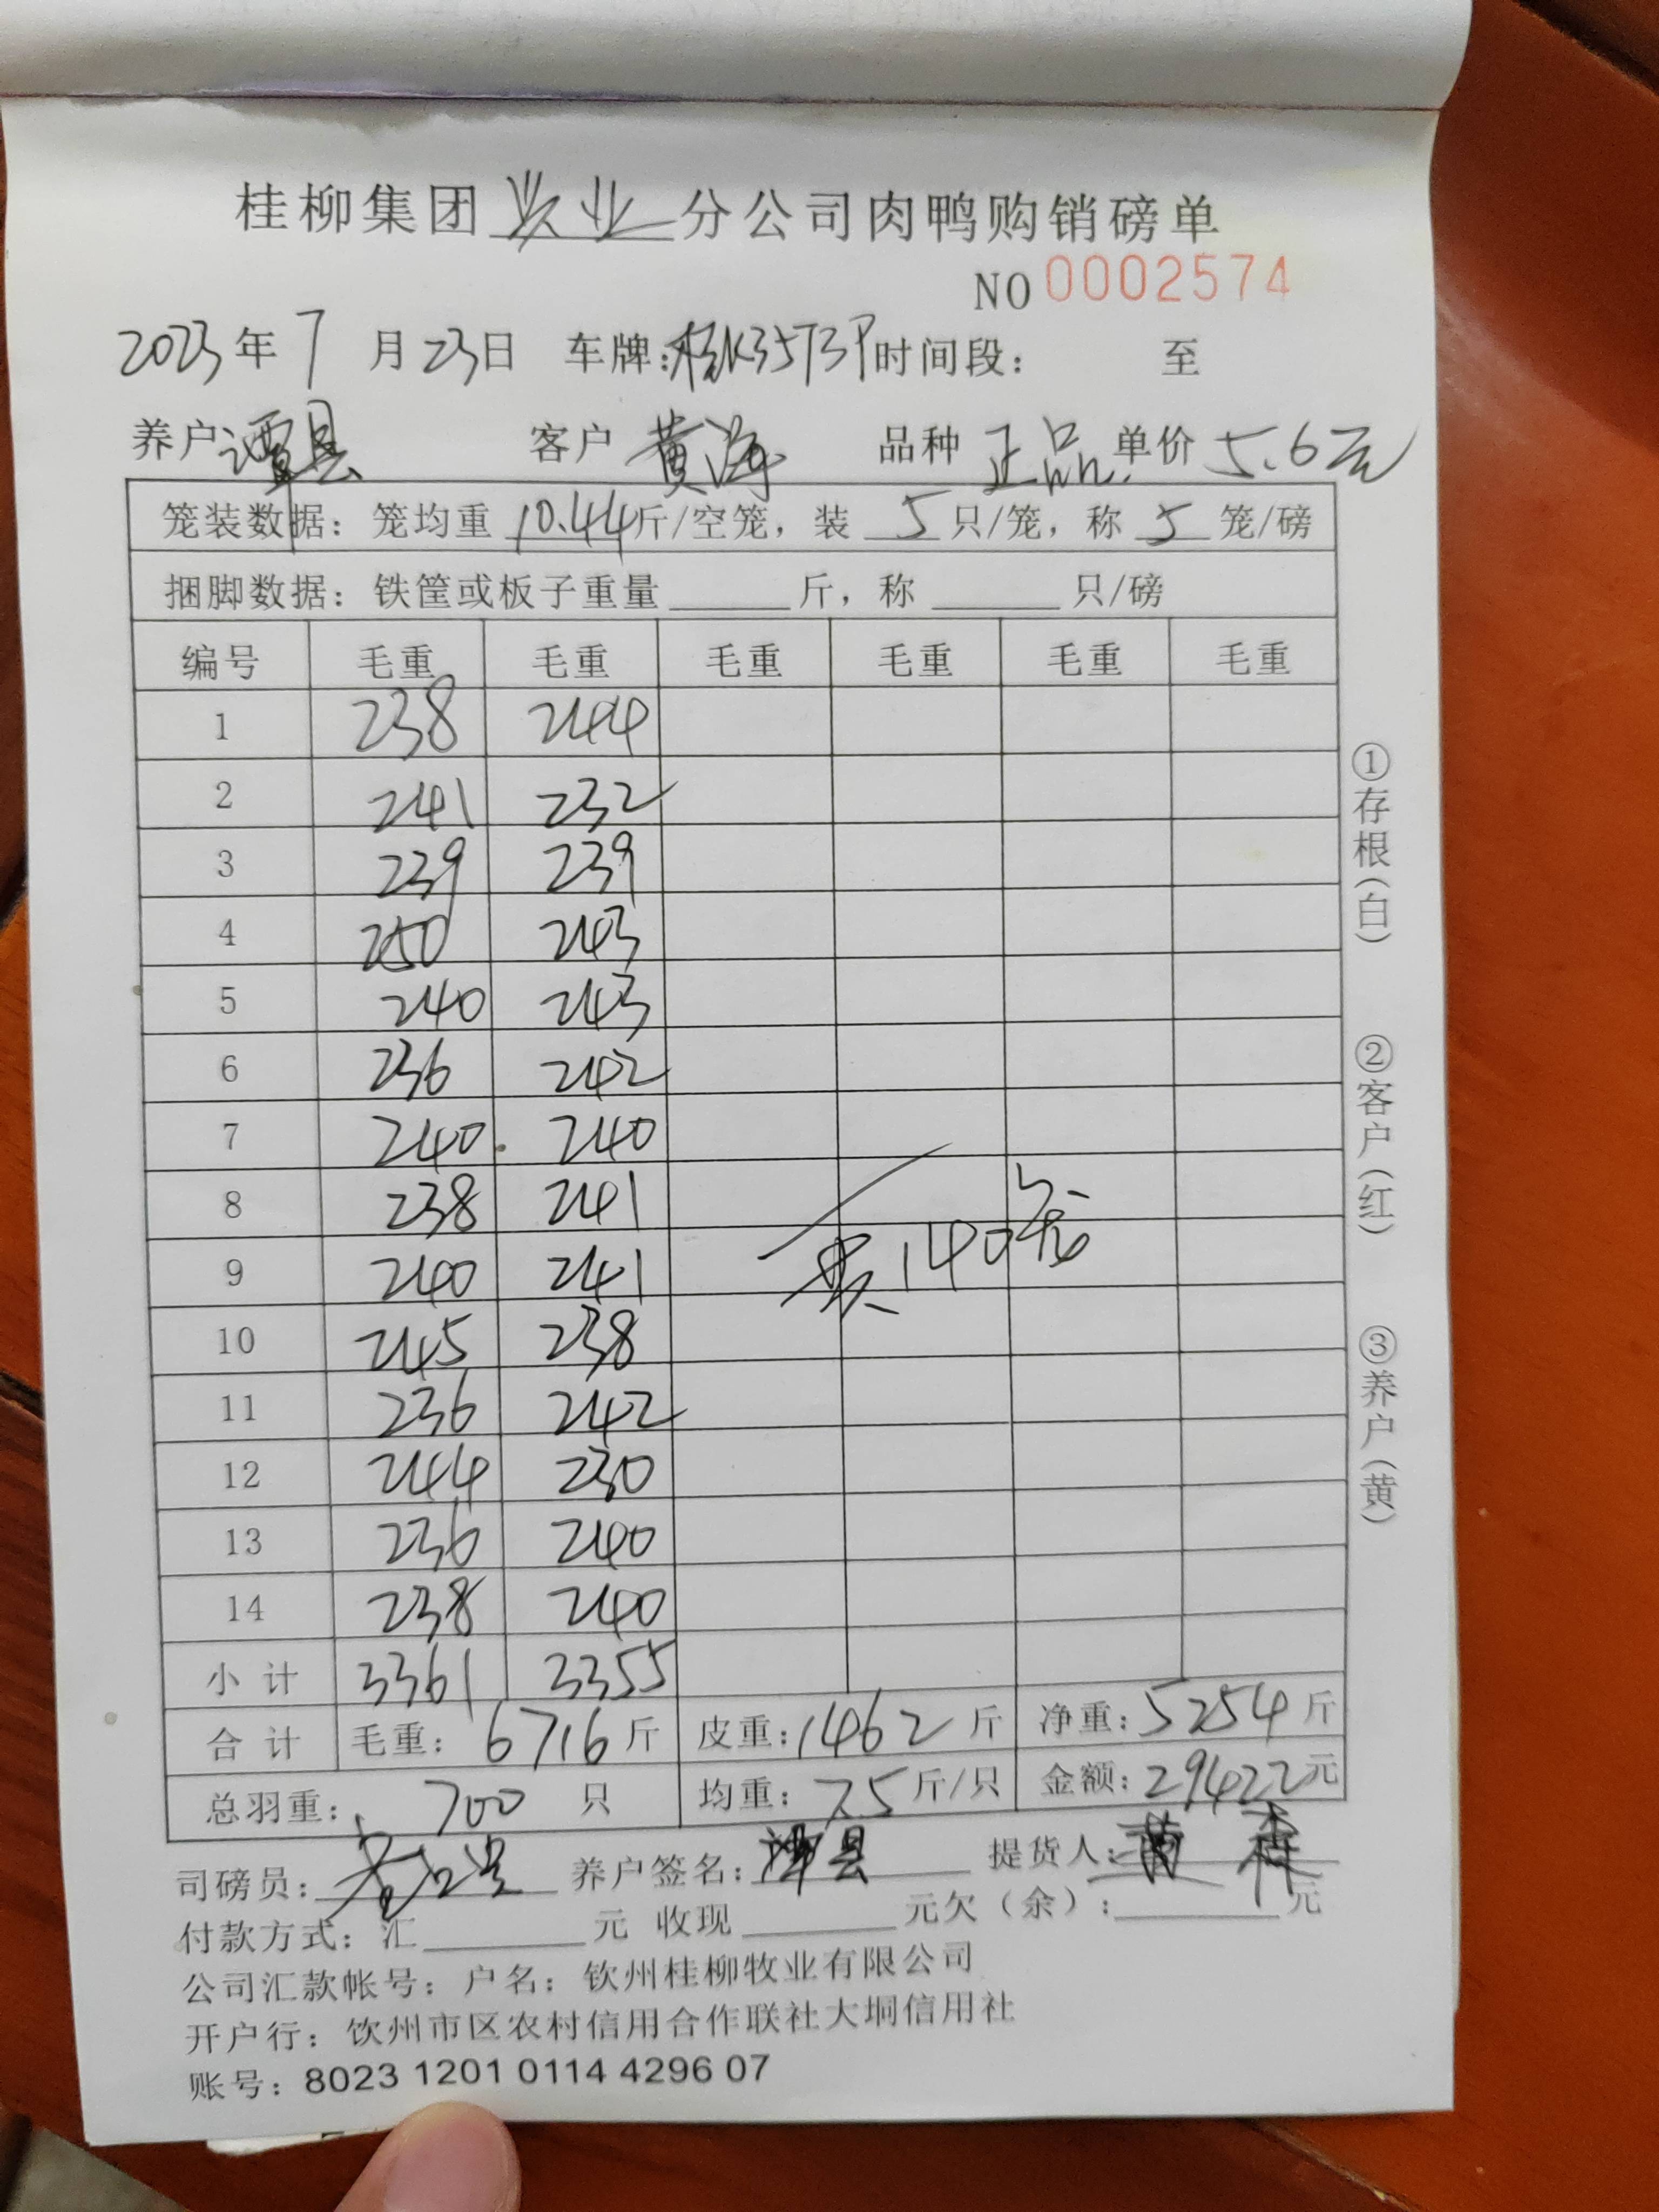 桂柳集团 牧业 分公司肉鸭购销磅单
NO 0002574
2023年 7 月 23日 车牌: 时间段: 至
养户 客户 黄海 品种 正品 单价 5.6元
笼装数据: 笼均重 10.44斤/空笼, 装 5 只/笼, 称 5 笼/磅
捆脚数据: 铁筐或板子重量 斤, 称 只/磅
编号 毛重 毛重 毛重 毛重 毛重 毛重
1 238 244
2 241 232
3 239 239
4 250 243
5 240 243
6 236 242
7 240 240
8 238 241
9 240 241
共140笼
10 245 238
11 236 242
12 244 230
13 236 240
14 238 240
小计 3361 3355
合计 毛重: 6716斤 皮重:1462斤 净重:5254斤
总羽重: 700 只 均重: 7.5斤/只 金额:29422元
司磅员: 养户签名: 提货人:
付款方式: 汇 元 收现 元欠(余): 元
公司汇款帐号: 户名: 钦州桂柳牧业有限公司
开户行: 饮州市区农村信用合作联社大垌信用社
账号: 8023 1201 0114 4296 07
①存根(白) ②客户(红) ③养户(黄)